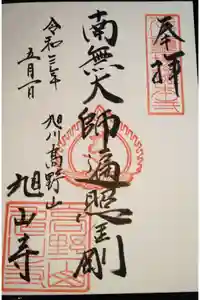 奉拝
南無大師遍照金剛
旭川髙野山
旭山寺
令和三年
五月一日